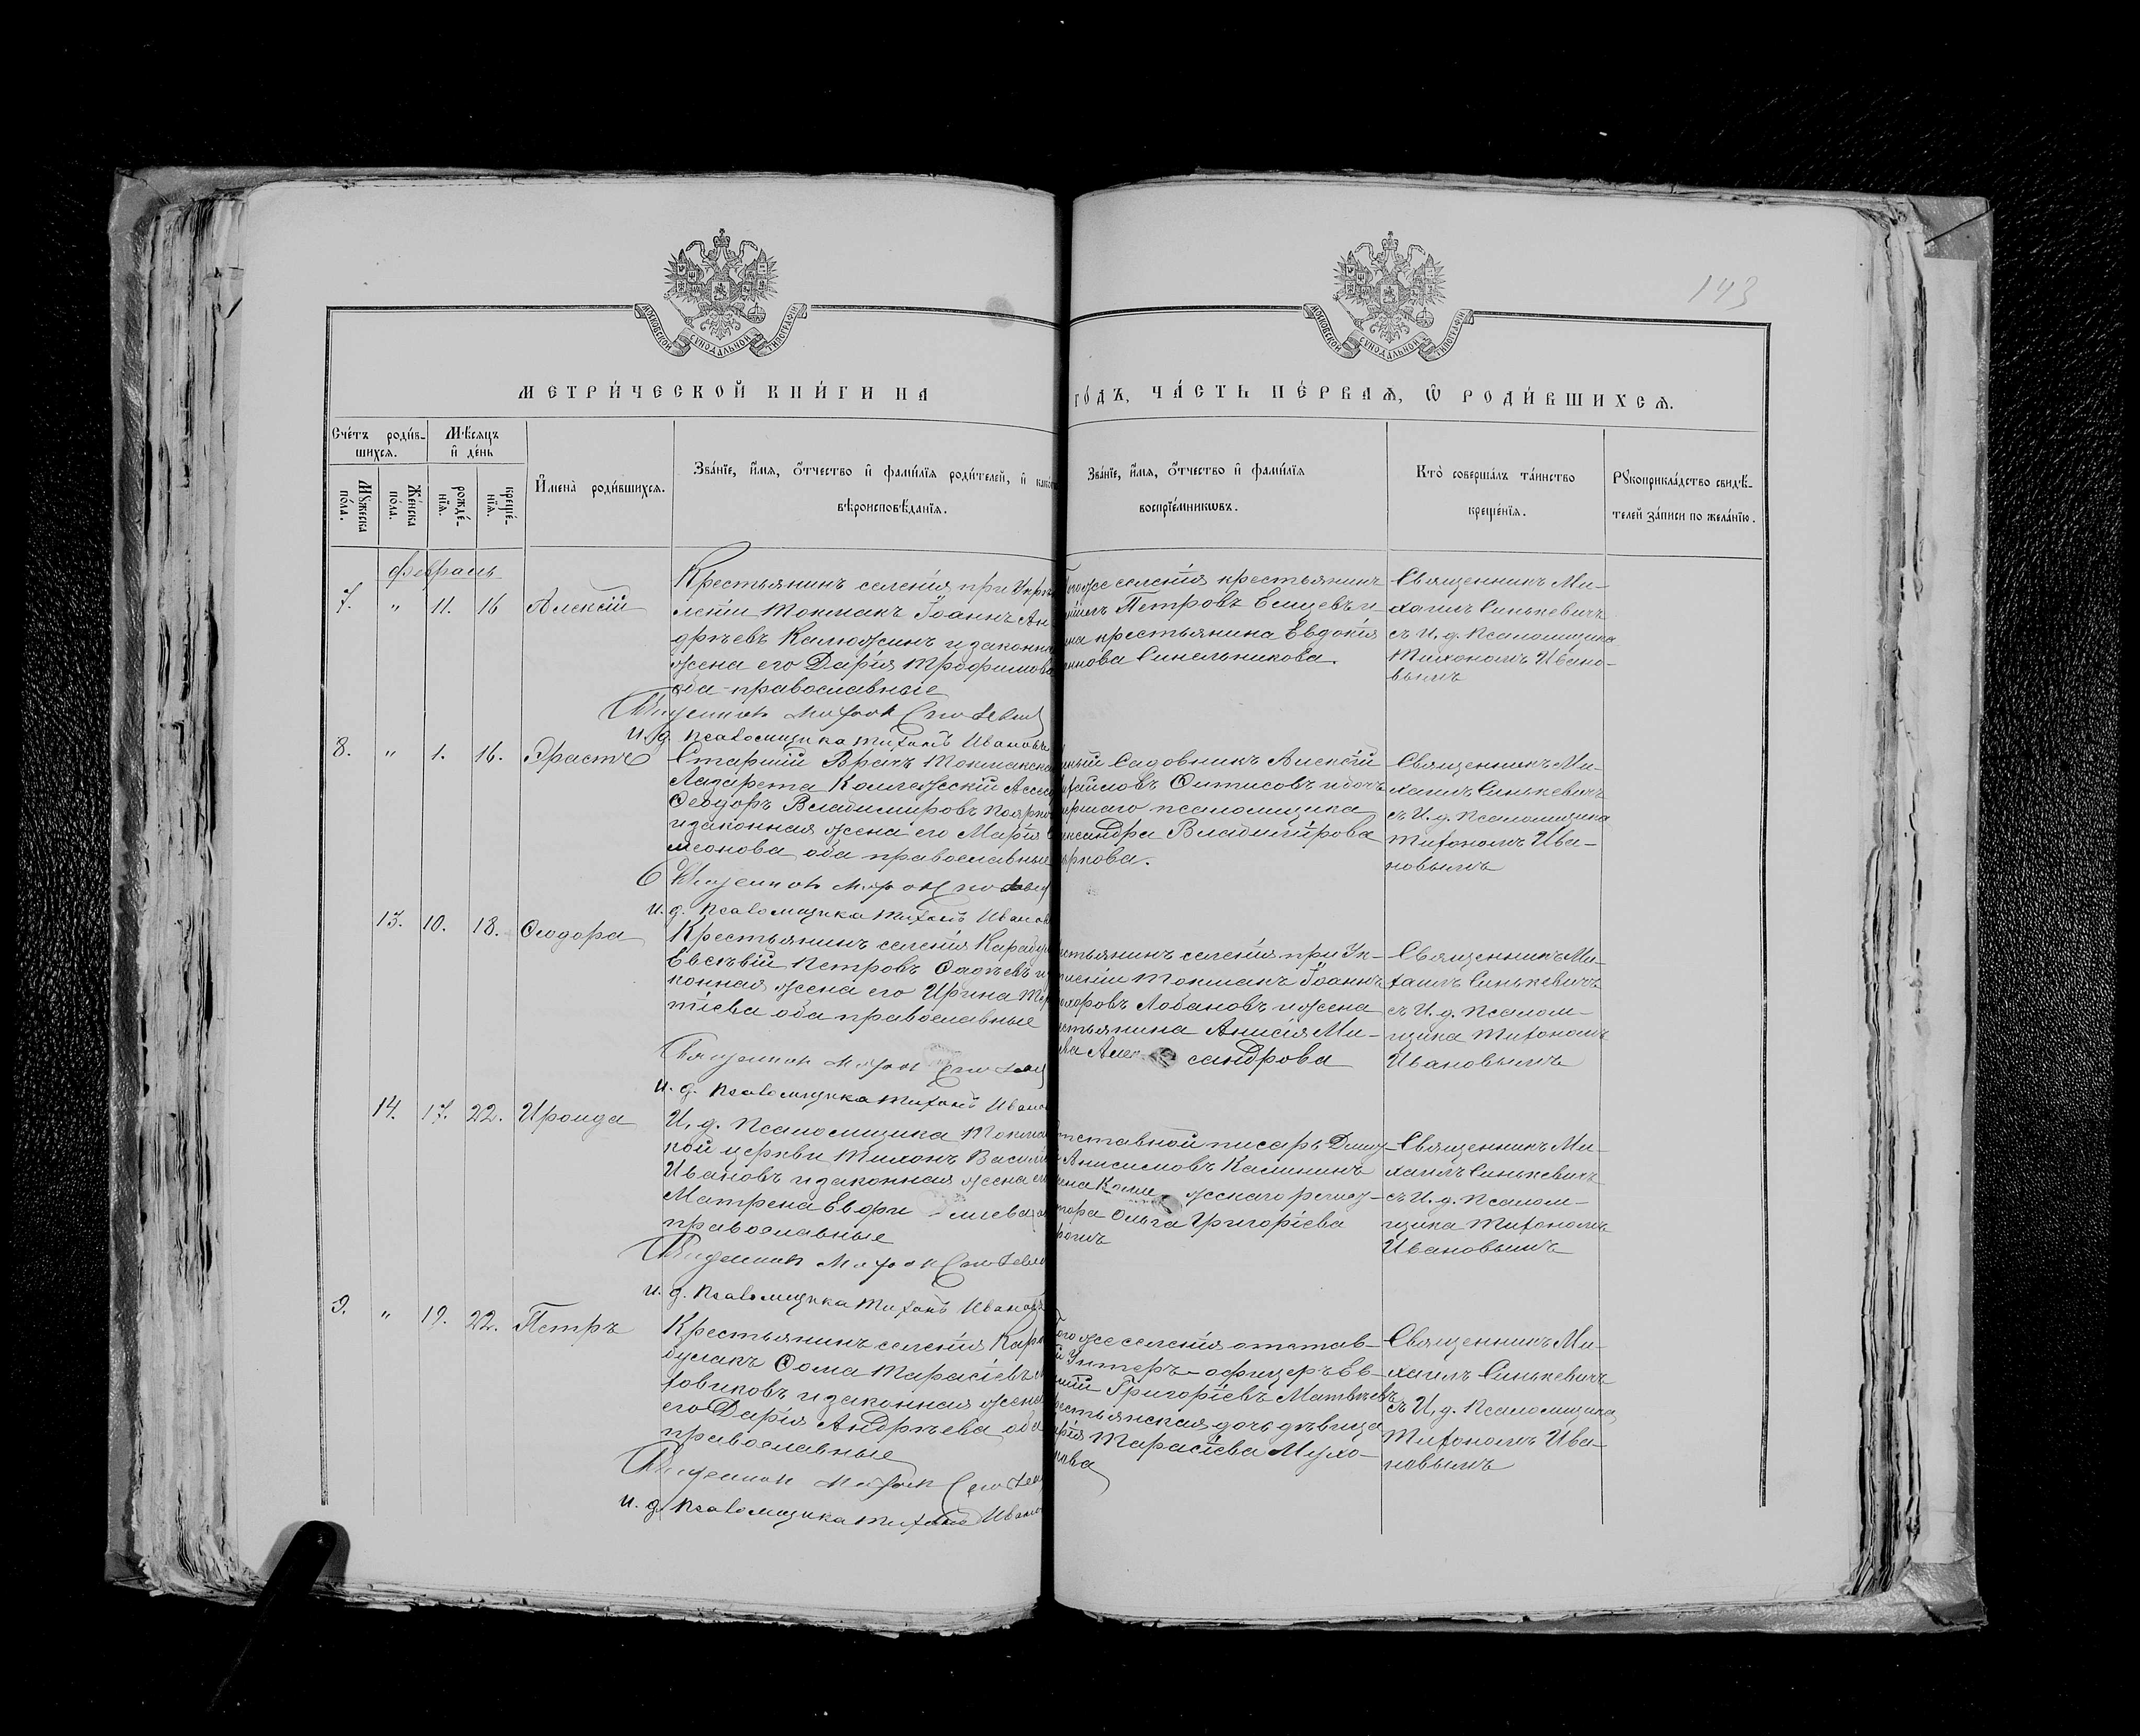 143
МОСКОВСКОЙ СѴНОДАЛЬНОЙ ТИПОГРАФІИ
МОСКОВСКОЙ СѴНОДАЛЬНОЙ ТИПОГРАФІИ
МЕТРИ́ЧЕСКОЙ КНИ́ГИ НА
ГО́ДЪ, ЧА́СТЬ ПЕ́РВАѦ, Ѿ РОДИ́ВШИХСѦ.
Сче́тъ роди́в-
шихся.
Мѣсяцъ
и де́нь
Мꙋ́жеска
по́ла.
Же́нска
по́ла.
рожде́-
нїя.
креще́-
нїя.
Имена̀ роди́вшихся.
Зва́нїе, и́мя, о́тчество и фами́лїя роди́телей, и како́
вѣроисповѣ́данїя.
Зва́нїе, и́мя, о́тчество и фами́лїя
воспрїе́мникѡвъ.
Кто̀ соверша́лъ та́инство
креще́нїя.
Рꙋкоприкла́дство свидѣ́-
телей за́писи по жела́нїю.
Февраль
7. " 11. 16 Алексій
Крестьянинъ селенія при Укрѣ
леніи Токмакъ Іоаннъ Ан
дреевъ Калюжинъ и законн
жена его Дарія Трофимова
оба православные
Священникъ Михаилъ Синькевич
И. д. Псаломщика Тихонъ Ивановъ
тогоже селенія крестьянинъ
Петровъ Елисевъ и
на крестьянина Евдокія
нова Синельникова.
Священникъ Ми-
хаилъ Синькевичъ
съ И. д. Псаломщика
Тихономъ Ивано-
вымъ
8. " 1. 16. Эрастъ
Старшій Врачъ Токмакска
Лазарета Коллежскій Ассес
Ѳеодоръ Владимировъ Поярко
и законная жена его Марія С
меонова, оба православные
Священникъ Михаилъ Синькевич
И. д. Псаломщика Тихонъ Иванов
ный Садовникъ Алексій
хайловъ Фитисовъ и дочь
ершаго псаломщика
ександра Владимірова
яркова.
Священникъ Ми-
хаилъ Синькевичъ
съ И. д. Псаломщика
Тихономъ Ива-
новымъ
13. 10. 18. Ѳеодора
Крестьянинъ селенія Карабу
Евсѣвій Петровъ Фадѣевъ и
конная жена его Ирина Те
тіева оба православные
Священникъ Михаилъ Синькевич
И. д. Псаломщика Тихонъ Ивано
естьянинъ селенія при Ук-
леніи Токмакъ Іоаннъ
Лобановъ и жена
естьянина Анисія Ми-
сандрова
Священникъ Ми-
хаилъ Синькевичъ
съ И. д. Псалом-
щика Тихономъ
Ивановымъ
14. 17. 22. Ироида
И. д. Псаломщика Токма
кой церкви Тихонъ Васил
Ивановъ и законная жена ег
Матрена Евфи міева, о
православные
Священникъ Михаилъ Синькевич
И. д. Псаломщика Тихонъ Иванов
тставной писарь Дми
Анисимовъ Калининъ
ена Колле жскаго реги
тора Ольга Григоріева
Священникъ Ми-
хаилъ Синькевичъ
съ И. д. Псалом-
щика Тихономъ
Ивановымъ
9. " 19. 22. Петръ
Крестьянинъ селенія Кара
булакъ Ѳома Тарасіевъ
ховиковъ и законная жена
его Дарія Андреева оба
православные
Священникъ Михаилъ Синькевич
И. д. Псаломщика Тихонъ Ивано
того же селенія отстав-
Унтеръ-офицеръ Ев-
Григоріевъ Матвѣевъ
рестьянская дочь дѣвица
арія Тарасіева Мухо-
кова
Священникъ Ми-
хаилъ Синькевичъ
съ И. д. Псаломщика
Тихономъ Ива-
новымъ